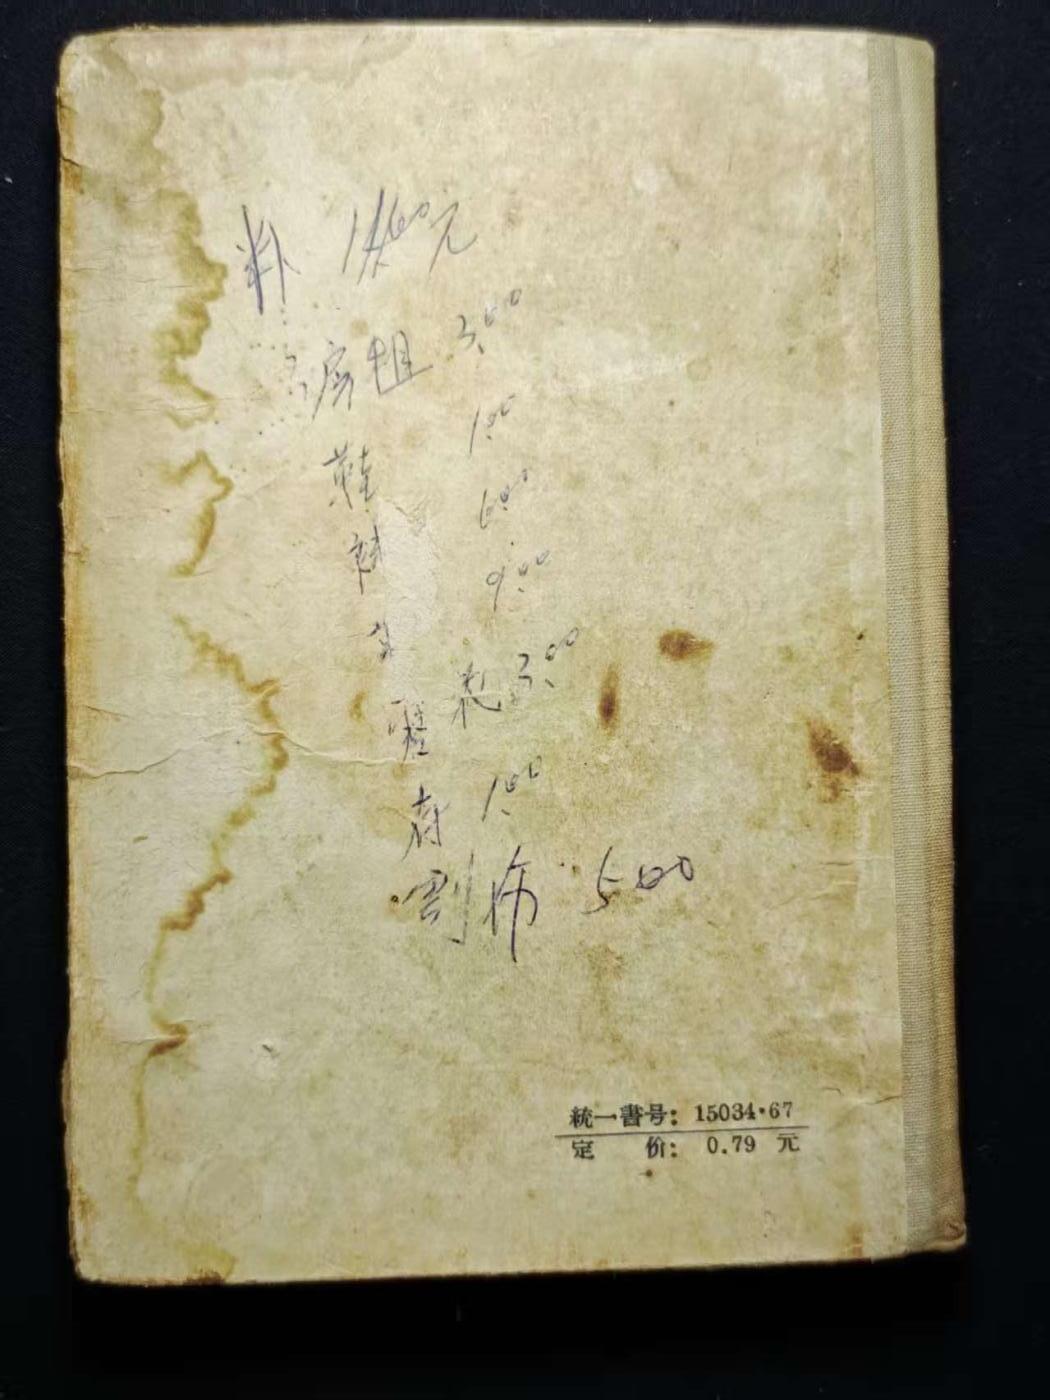 料 1460元
房租 3.00
鞋 1.00
袜 6.00
9.00
3.00
1.00
割布 500
統一書号: 15034·67
定 价: 0.79 元